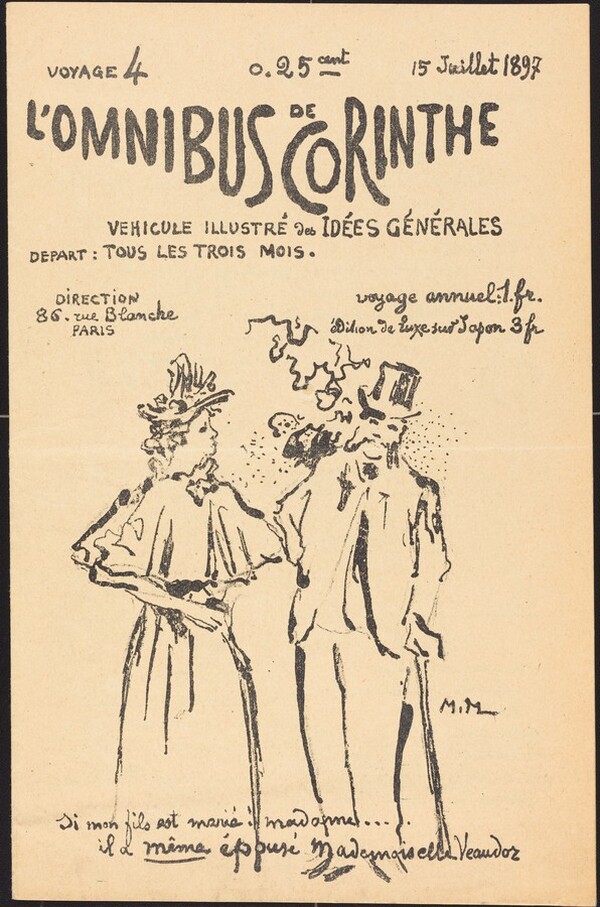 VOYAGE 4 0.25 cent 15 Juillet 1897
L'OMNIBUS DE CORINTHE
VEHICULE ILLUSTRÉ des IDÉES GÉNÉRALES
DEPART : TOUS LES TROIS MOIS.
DIRECTION
86. rue Blanche
PARIS
voyage annuel: 1. fr.
édition de Luxe sur Japon 3 fr
M.M
Si mon fils est marié ! madame....
il a même épousé Mademoiselle Veaudoz